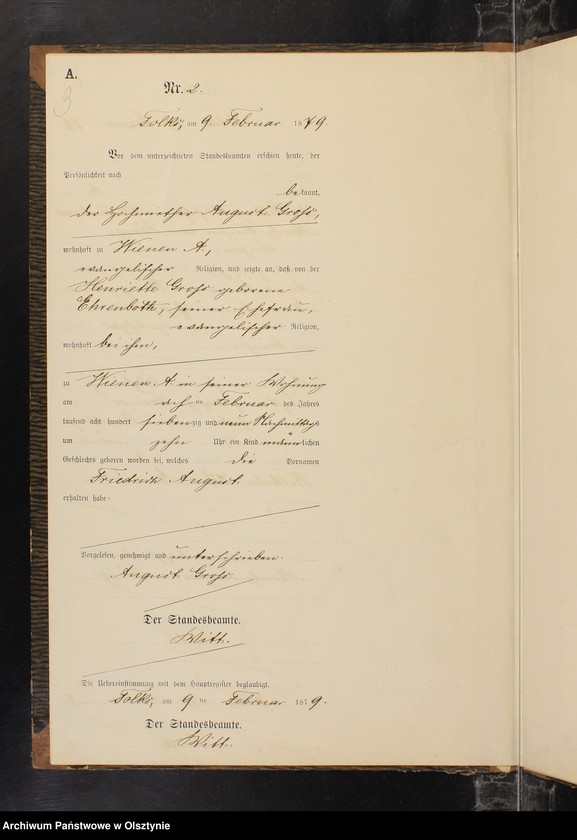 A.
3
Nr. 2.
Tolks, am 9. Februar 1879.
Vor dem unterzeichneten Standesbeamten erschien heute, der
Persönlichkeit nach
bekannt,
der August Groß,
wohnhaft zu Wienen A.,
evangelischer Religion, und zeigte an, daß von der
Henriette Groß geborene
Ehrenboth, seiner Ehefrau,
evangelischer Religion,
wohnhaft bei ihm,
zu Wienen A. in seiner Wohnung
am acht ten Februar des Jahres
tausend acht hundert siebenzig und neun Nachmittags
um zehn Uhr ein Kind männlichen
Geschlechts geboren worden sei, welches die Vornamen
Friedrich August
erhalten habe.
Vorgelesen, genehmigt und unterschrieben.
August Groß.
Der Standesbeamte.
Witt.
Die Uebereinstimmung mit dem Hauptregister beglaubigt.
Tolks, am 9 ten Februar 1879.
Der Standesbeamte.
Witt.
Archiwum Państwowe w Olsztynie